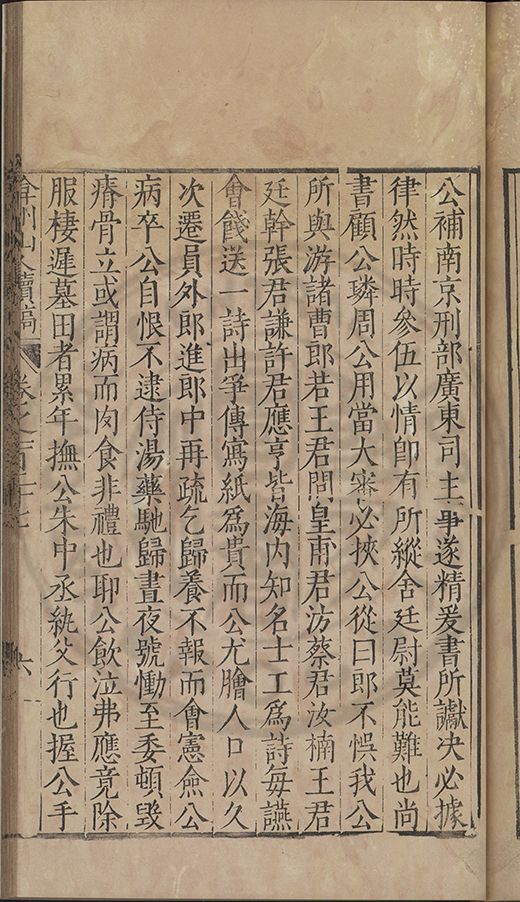 公補南京刑部廣東司主事遂精爰書所讞决必據
律然時時參伍以情卽有所縱舍廷尉莫能難也尚
書顧公璘周公用當大審必挾公從曰郎不悞我公
所與游諸曹郎若王君問皇甫君汸蔡君汝楠王君
廷幹張君謙許君應亨皆海內知名士工爲詩每讌
會餞送一詩出爭傳寫紙爲貴而公尤膾人口以久
次遷員外郎進郎中再疏乞歸養不報而會憲僉公
病卒公自恨不逮侍湯藥馳歸晝夜號慟至委頓毀
瘠骨立或謂病而肉食非禮也耶公飲泣弗應竟除
服棲遲墓田者累年撫公朱中丞紈父行也握公手
弇州山人續稿 卷之一百十七 六